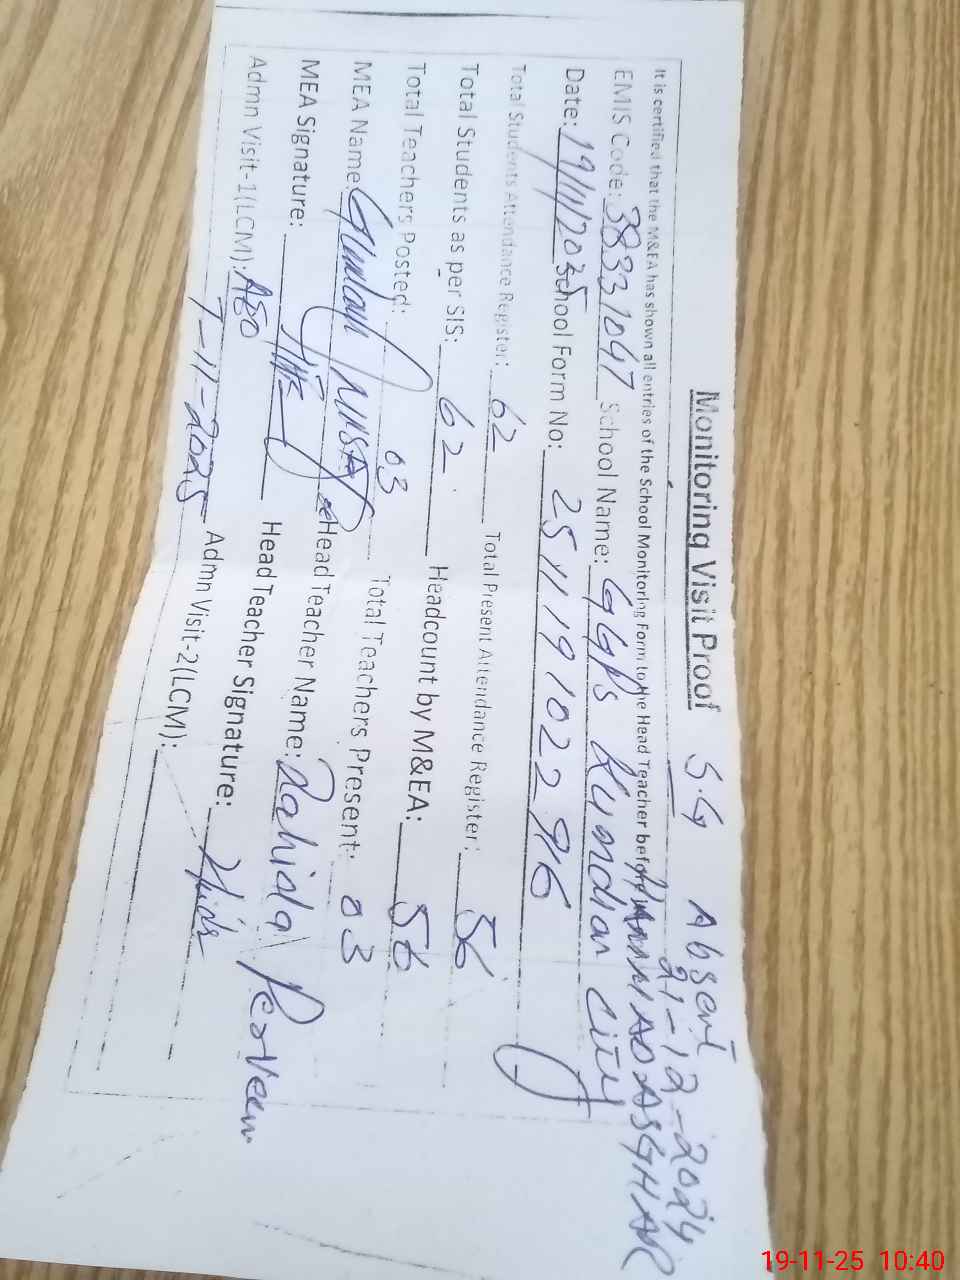 Monitoring Visit Proof S.G Absent
21-12-2024
It is certified that the M&EA has shown all entries of the School Monitoring Form to the Head Teacher before
ASGHAR
EMIS Code: 38331047 School Name: GGPS Kundian City
Date: 19/11/2025 School Form No: 2511191022916
Total Students Attendance Register: 62 Total Present Attendance Register: 56
Total Students as per SIS: 62 Headcount by M&EA: 56
Total Teachers Posted: 03 Total Teachers Present: 03
MEA Name: Head Teacher Name: Zahida Perveen
MEA Signature: Head Teacher Signature:
Admn Visit-1(LCM): AEO Admn Visit-2(LCM):
7-11-2025
19-11-25 10:40